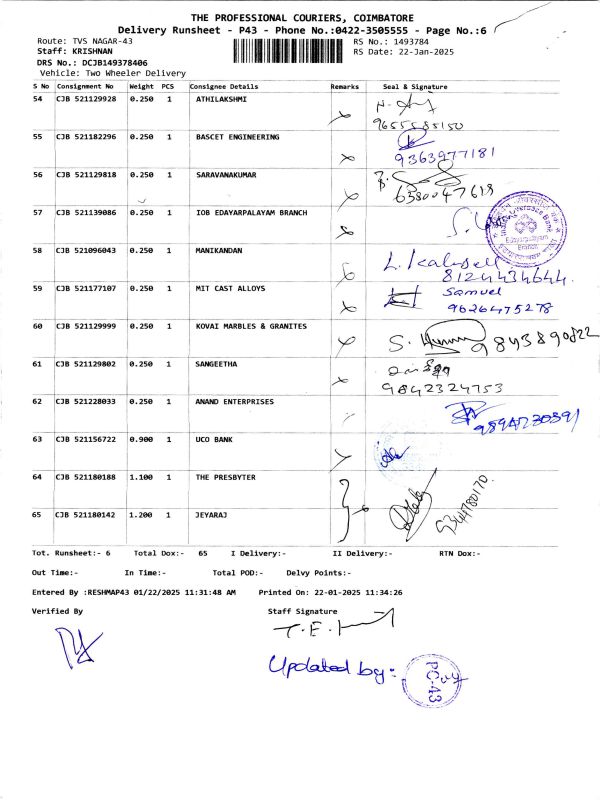 THE PROFESSIONAL COURIERS, COIMBATORE
Delivery Runsheet - P43 - Phone No.:0422-3505555 - Page No.:6
Route: TVS NAGAR-43 RS No.: 1493784
Staff: KRISHNAN RS Date: 22-Jan-2025
DRS No.: DCJB149378406
Vehicle: Two Wheeler Delivery
S No Consignment No Weight PCS Consignee Details Remarks Seal & Signature
54 CJB 521129928 0.250 1 ATHILAKSHMI
9655585150
55 CJB 521182296 0.250 1 BASCET ENGINEERING
9363977181
56 CJB 521129818 0.250 1 SARAVANAKUMAR
57 CJB 521139086 0.250 1 IOB EDAYARPALAYAM BRANCH
Indian Overseas Bank
Edayarpalayam
Branch
58 CJB 521096043 0.250 1 MANIKANDAN
8124434644
59 CJB 521177107 0.250 1 MIT CAST ALLOYS
Samuel
9626475278
60 CJB 521129999 0.250 1 KOVAI MARBLES & GRANITES
9843890822
61 CJB 521129802 0.250 1 SANGEETHA
9842324753
62 CJB 521228033 0.250 1 ANAND ENTERPRISES
63 CJB 521156722 0.900 1 UCO BANK
64 CJB 521180188 1.100 1 THE PRESBYTER
65 CJB 521180142 1.200 1 JEYARAJ
Tot. Runsheet:- 6 Total Dox:- 65 I Delivery:- II Delivery:- RTN Dox:-
Out Time:- In Time:- Total POD:- Delvy Points:-
Entered By :RESHMAP43 01/22/2025 11:31:48 AM Printed On: 22-01-2025 11:34:26
Verified By Staff Signature
Updated by:
PC-43